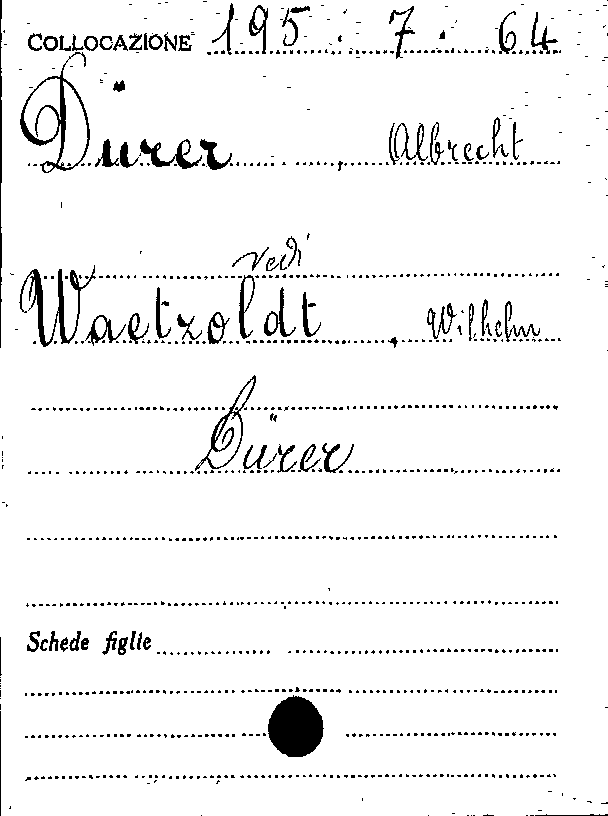 COLLOCAZIONE 195.7.64
Dürer, Albrecht
vedi
Waetzoldt, Wilhelm
Dürer
Schede figlie